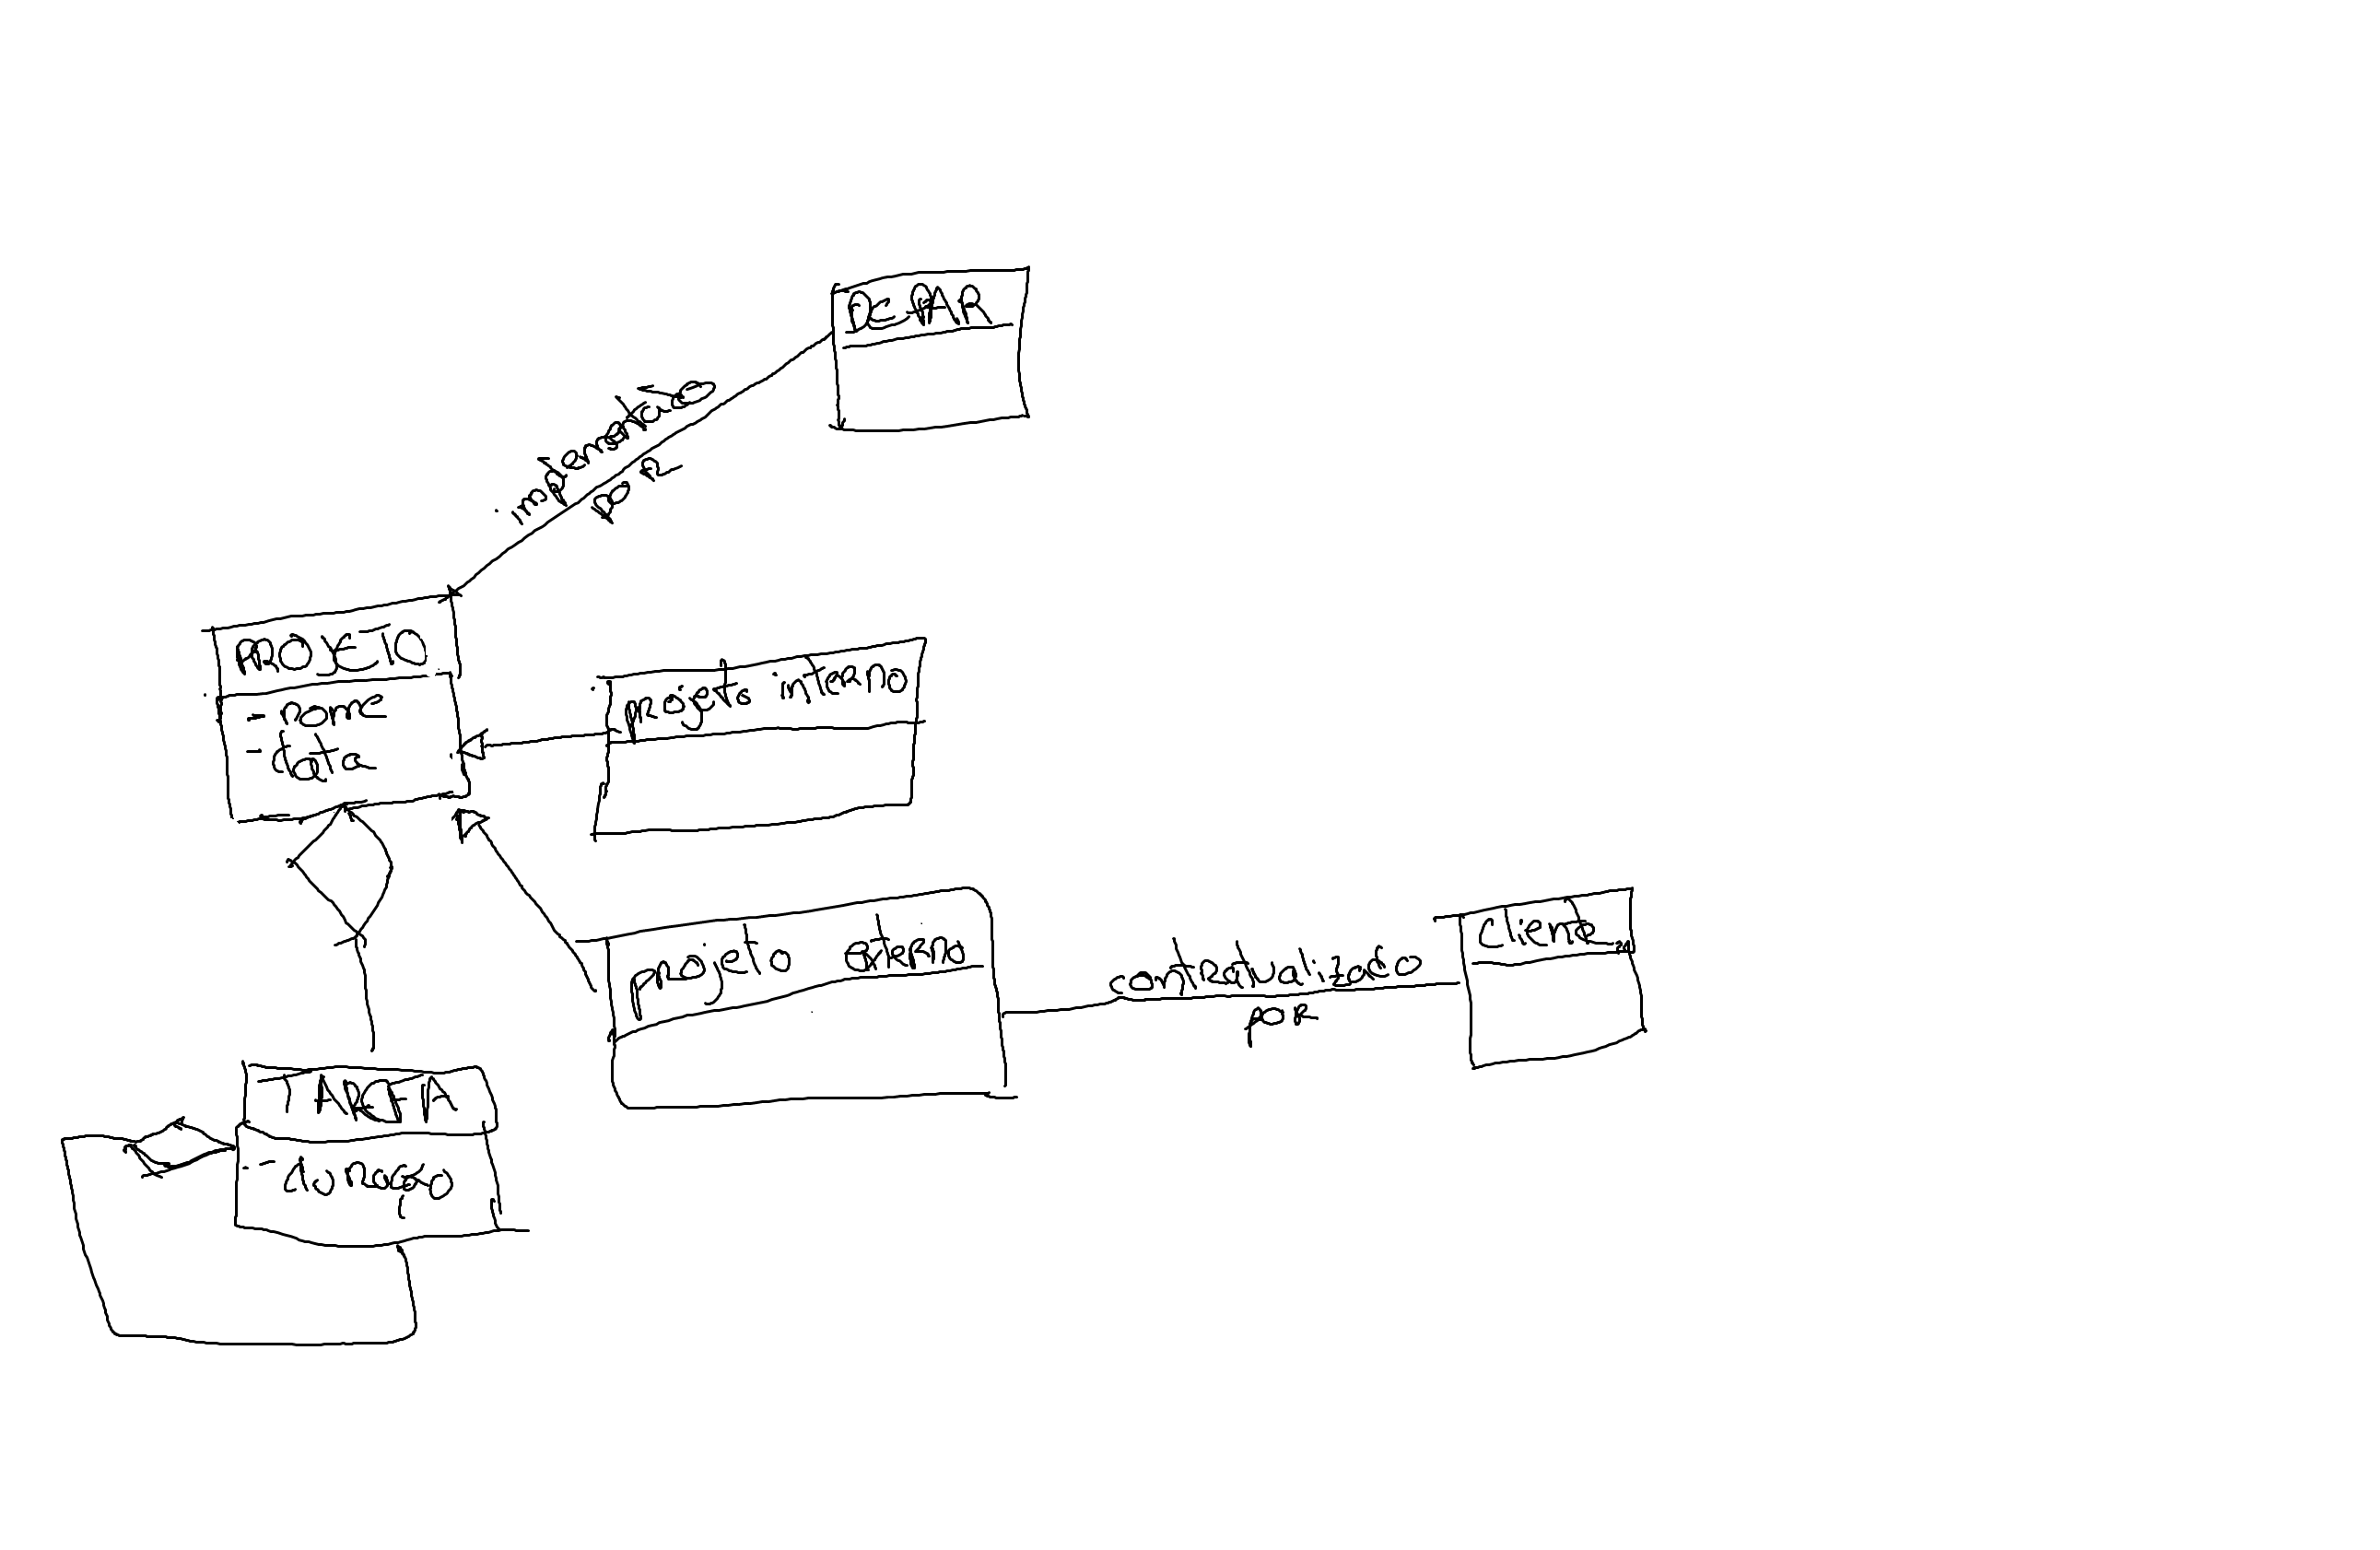 DEPAR
implementado
por
PROJETO
- nome
- data
projeto interno
projeto externo
contratualizado
por
Cliente
TAREFA
- duração